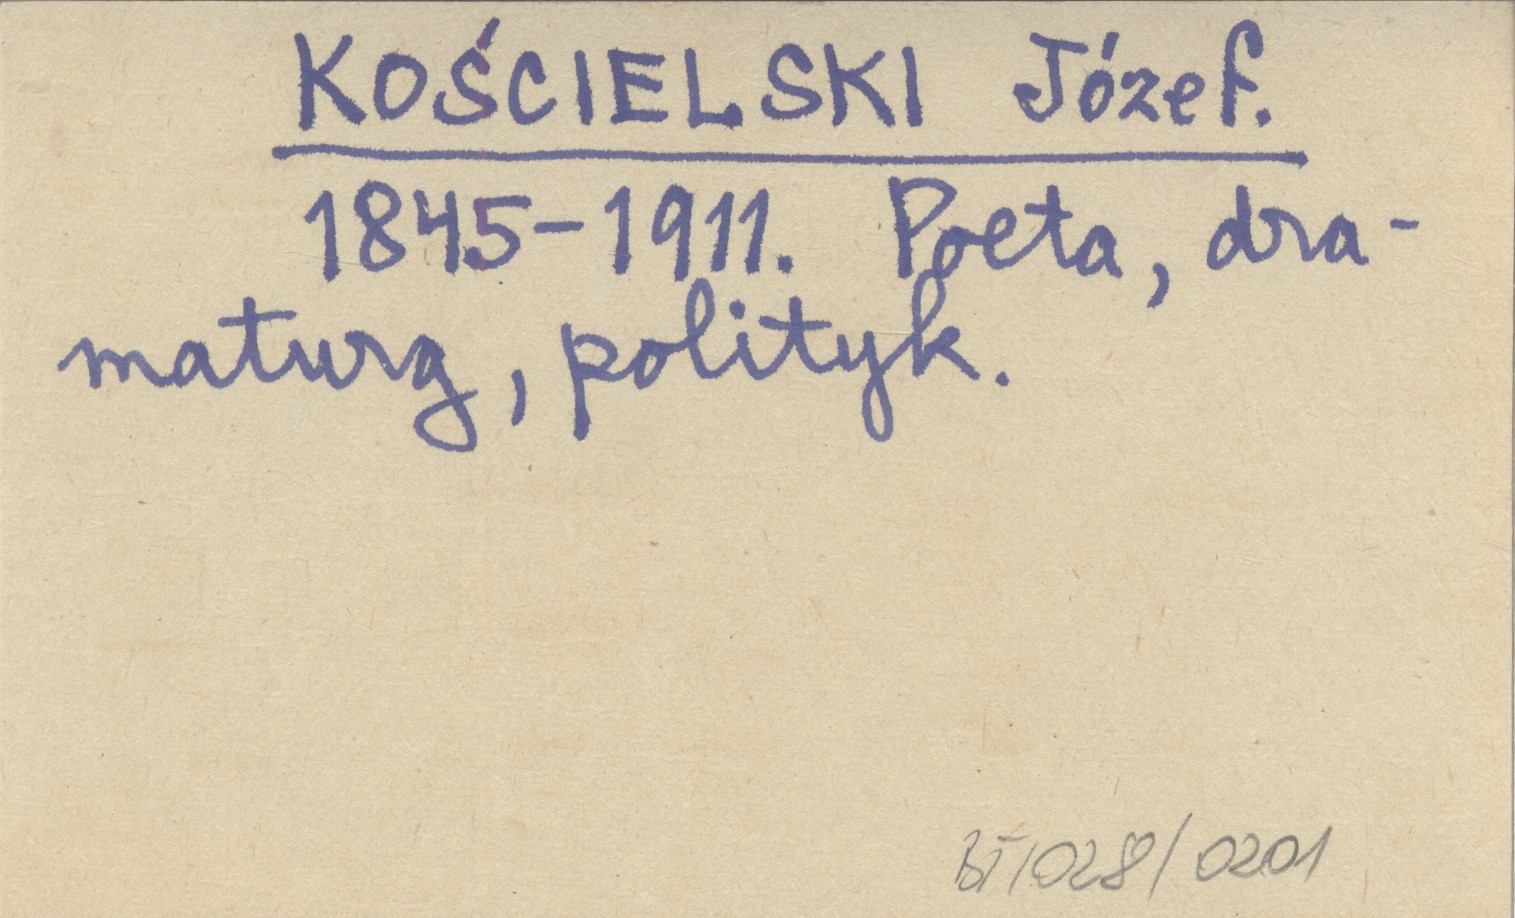 KOŚCIELSKI Józef.
1845-1911. Poeta, dra-
maturg, polityk.
BT/028/0201